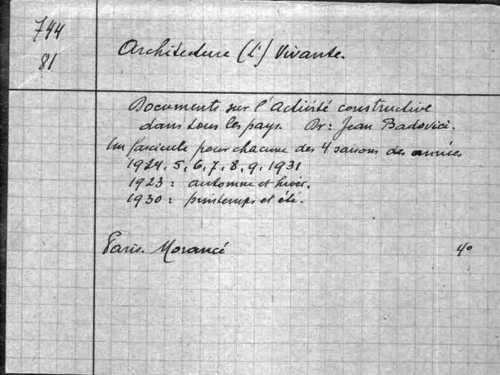 744
81
Architecture (L') Vivante.
Documents sur l'activité constructive
dans tous les pays. Dr: Jean Badovici.
Un fascicule pour chacune des 4 saisons des années
1924, 5, 6, 7, 8, 9, 1931
1923: automne et hiver.
1930: printemps et été.
Paris. Morancé 4°